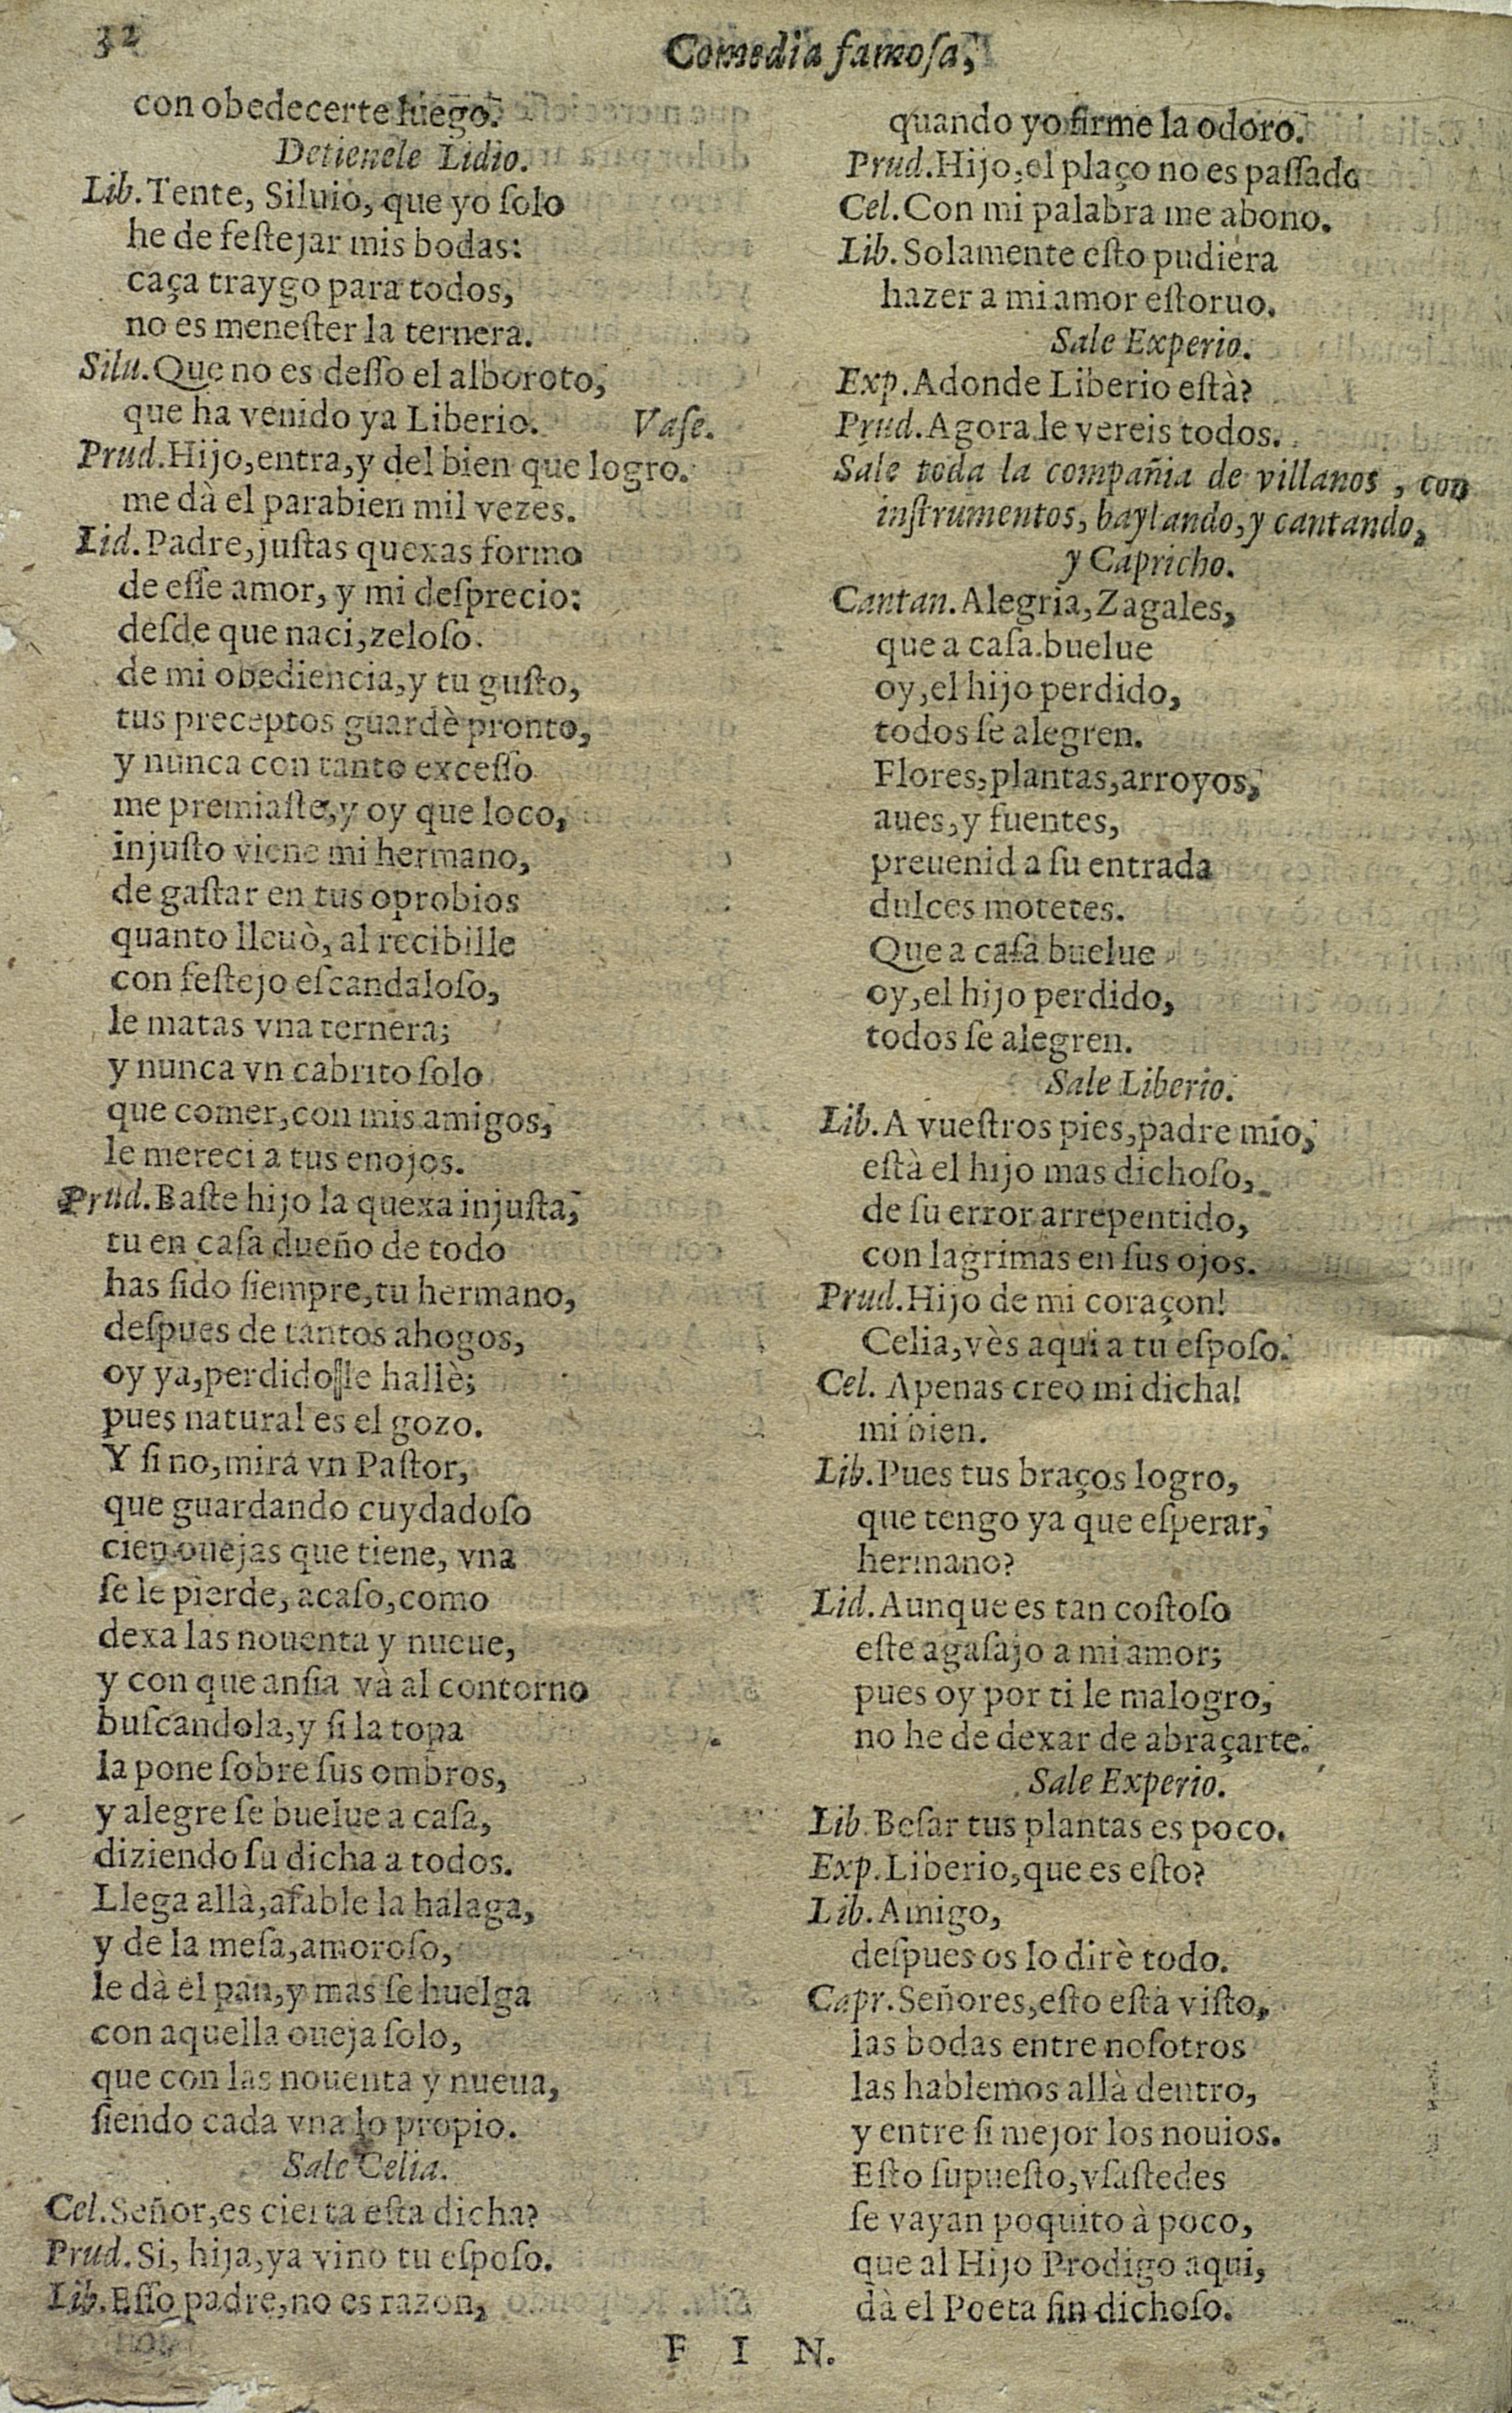 32
Comedia famosa,
con obedecerte luego.
Detienele Lidio.
Lib. Tente, Siluio, que yo solo
he de festejar mis bodas:
caça traygo para todos,
no es menester la ternera.
Silu. Que no es desso el alboroto,
que ha venido ya Liberio. Vase.
Prud. Hijo, entra, y del bien que logro.
me dà el parabien mil vezes.
Lid. Padre, justas quexas formo
de esse amor, y mi desprecio:
desde que naci, zeloso.
de mi obediencia, y tu gusto,
tus preceptos guardè pronto,
y nunca con tanto excesso
me premiaste, y oy que loco,
injusto viene mi hermano,
de gastar en tus oprobios
quanto lleuò, al recibille
con festejo escandaloso,
le matas vna ternera;
y nunca vn cabrito solo
que comer, con mis amigos,
le mereci a tus enojos.
Prud. Baste hijo la quexa injusta,
tu en casa dueño de todo
has sido siempre, tu hermano,
despues de tantos ahogos,
oy ya, perdido le hallè;
pues natural es el gozo.
Y si no, mira vn Pastor,
que guardando cuydadoso
cien ouejas que tiene, vna
se le pierde, acaso, como
dexa las nouenta y nueue,
y con que ansia và al contorno
buscandola, y si la topa
la pone sobre sus ombros,
y alegre se buelue a casa,
diziendo su dicha a todos.
Llega allà, afable la halaga,
y de la mesa, amoroso,
le dà el pan, y mas se huelga
con aquella oueja solo,
que con las nouenta y nueua,
siendo cada vna lo propio.
Sale Celia.
Cel. Señor, es cierta esta dicha?
Prud. Si, hija, ya vino tu esposo.
Lib. Esso padre, no es razon,
quando yo firme la odoro.
Prud. Hijo, el plaço no es passado
Cel. Con mi palabra me abono.
Lib. Solamente esto pudiera
hazer a mi amor estoruo.
Sale Experio.
Exp. Adonde Liberio està?
Prud. Agora le vereis todos.
Sale toda la compañia de villanos, con
instrumentos, baylando, y cantando,
y Capricho.
Cantan. Alegria, Zagales,
que a casa buelue
oy, el hijo perdido,
todos se alegren.
Flores, plantas, arroyos,
aues, y fuentes,
preuenid a su entrada
dulces motetes.
Que a casa buelue
oy, el hijo perdido,
todos se alegren.
Sale Liberio.
Lib. A vuestros pies, padre mio,
està el hijo mas dichoso,
de su error arrepentido,
con lagrimas en sus ojos.
Prud. Hijo de mi coraçon!
Celia, vès aqui a tu esposo.
Cel. Apenas creo mi dicha!
mi bien.
Lib. Pues tus braços logro,
que tengo ya que esperar,
hermano?
Lid. Aunque es tan costoso
este agasajo a mi amor;
pues oy por ti le malogro,
no he de dexar de abraçarte.
Sale Experio.
Lib. Besar tus plantas es poco.
Exp. Liberio, que es esto?
Lib. Amigo,
despues os lo dirè todo.
Capr. Señores, esto està visto,
las bodas entre nosotros
las hablemos allà dentro,
y entre si mejor los nouios.
Esto supuesto, vsastedes
se vayan poquito à poco,
que al Hijo Prodigo aqui,
dà el Poeta fin dichoso.
F I N.